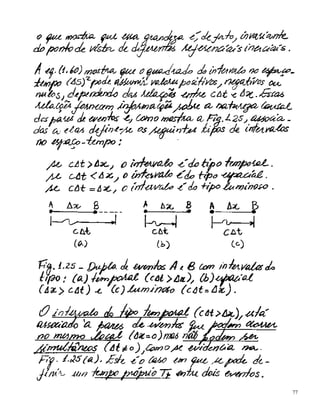 o que mostra que essa grandeza é, de fato, invariante
do ponto de vista de diferentes referenciais inerciais.
A eq. (1.60) mostra que o quadrado do intervalo no espaço-
tempo (ΔS)² pode assumir valores positivos, negativos ou
nulos, dependendo das relações entre cΔt e Δx. Essas
relações fornecem informação sobre a natureza causal
dos pares de eventos e, como mostra a Fig. 1.25, associa-
das a elas define-se os seguintes tipos de intervalos
no espaço-tempo:
se cΔt > Δx, o intervalo é do tipo temporal.
se cΔt < Δx, o intervalo é do tipo espacial.
se cΔt = Δx, o intervalo é do tipo luminoso.
A Δx B A Δx B A Δx B
cΔt cΔt cΔt
(a) (b) (c)
Fig. 1.25 - Dupla de eventos A e B com intervalos do
tipo: (a) temporal (cΔt > Δx), (b) espacial
(Δx > cΔt) e (c) luminoso (cΔt = Δx).
O intervalo do tipo temporal (cΔt > Δx), está
associado a pares de eventos que podem ocorrer
no mesmo local (Δx = 0) mas não podem ser
simultâneos (Δt ≠ 0), como se evidencia na
Fig. 1.25(a). Este é o caso em que se pode de-
finir um tempo próprio entre dois eventos.
77